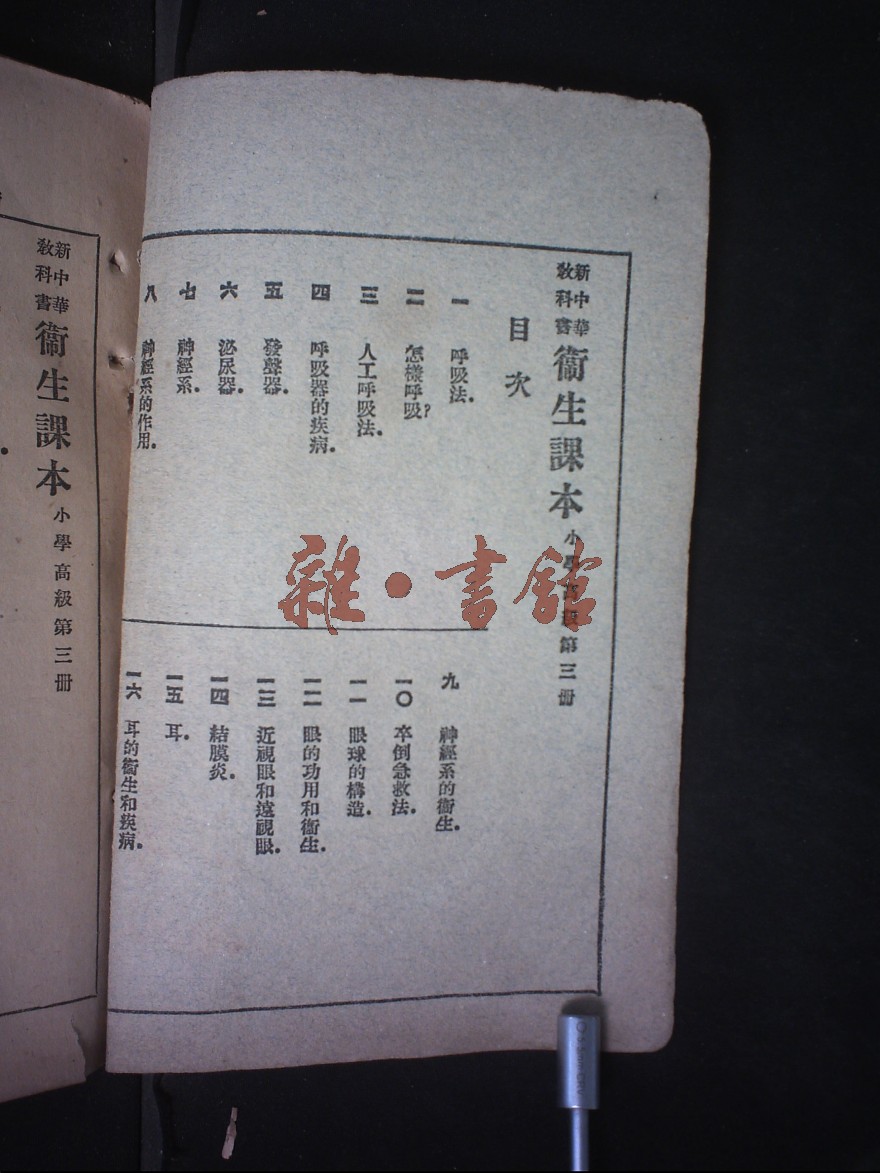 新中華
教科書
衞生課本
小學高級第三册
目次
一 呼吸法.
二 怎樣呼吸?
三 人工呼吸法.
四 呼吸器的疾病.
五 發聲器.
六 泌尿器.
七 神經系.
八 神經系的作用.
九 神經系的衞生.
一〇 卒倒急救法.
一一 眼球的構造.
一二 眼的功用和衞生.
一三 近視眼和遠視眼.
一四 結膜炎.
一五 耳.
一六 耳的衞生和疾病.
新中華
教科書
衞生課本
小學高級第三册
雜·書館